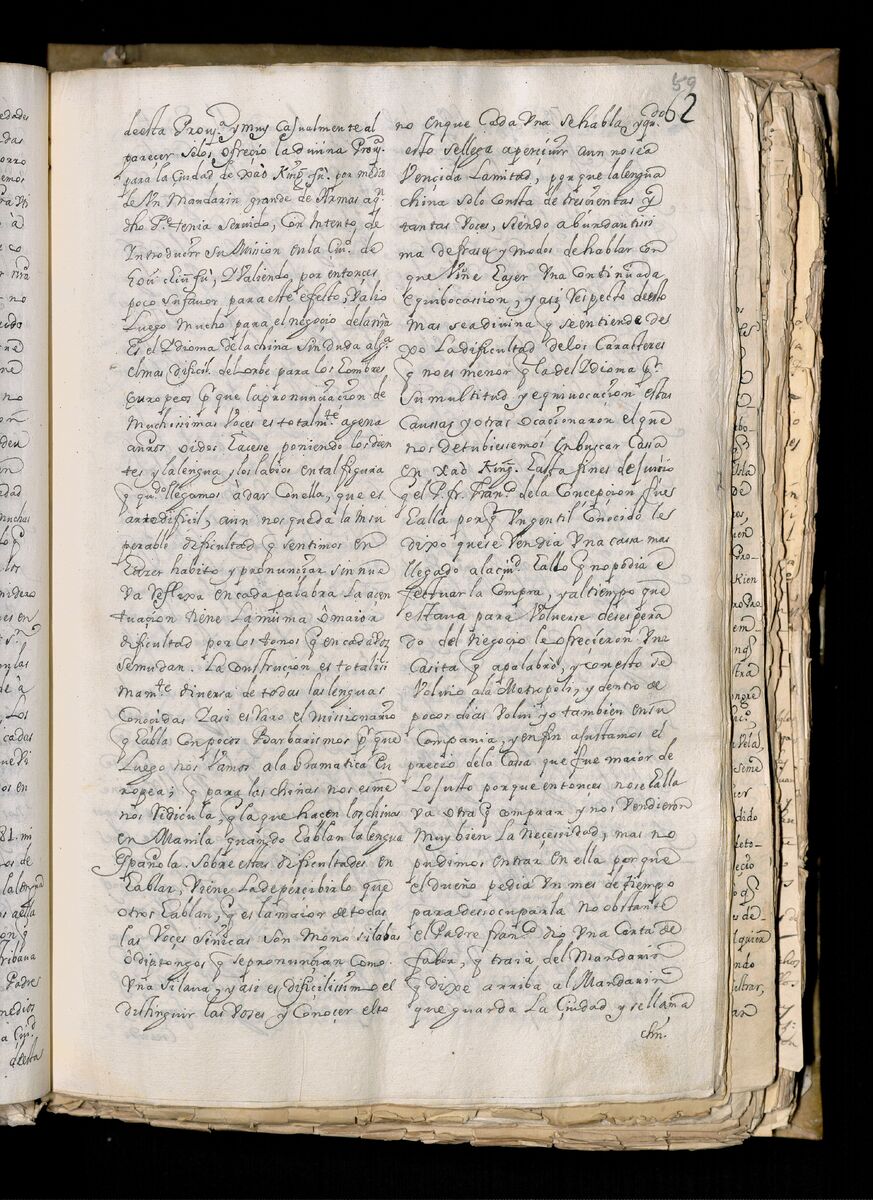 59
62
de esta Prouy.ª y muy casualmente al
parecer se los ofrecio la diuina Prouy.ª
para la Ciudad de Xâo King fù. por medio
de Vn Mandarin grande de Armas aq.n
dho P.e tenia seruido, con Intento de
Introducir su Mission en la Ciu.d de
fù, Y Valiendo, por entonces
poco su fauor para este efecto, Valio
Luego mucho para el negocio de la
Es el Ydioma de la china sin duda alg.ª
el mas dificil del orbe para los Eombres
Europeos p.r que la pronunciacion de
Muchissimas Voces es totalm.te agena
a nros oidos Eacese poniendo los dien
tes y la lengua y los labios en tal figura
q qu.do llegamos à dar con ella, que es
arto dificil, aun nos queda la insu
perable dificultad q sentimos en
Eazer habito y pronunciar sin nue
va reflexa en cada palabra La acen
tuacion tiene La misma ô maior
dificultad por los tonos q en cada voz
se mudan. La Construcion es totalissi
mam.te diuersa de todas las lenguas
Conocidas Y asi es Raro el Missionario
q Eabla con pocos Barbarismos p.r que
Luego nos Vamos a la Gramatica Eu
ropea; q para las chinas no es me
nos Ridicula, q la que hacen los chinas
en Manila quando Eablan la lengua
Española. Sobre estas dificultades en
Eablar, Viene La de percibir lo que
otros Eablan, q es la maior de todas
las Voces sinicas son Mono silabas
ô diptongos q se pronuncian como
Vna silaua, y asi es dificilissimo el
distinguir las Voses, y Conocer el to
no en que Cada Vna se habla, y qu.do
esto se llega apercivir aun no sea
Vencida La mitad, por que la lengua
china solo consta de tresçientas y
tantas Voces, siendo abundantissi
ma de frases y modos de hablar con
que Viene Eazer Vna continuada
equibocassion, y asi, Respecto de esto
mas se adivina q se entiende De
xo La dificultad de Los Caratteres
q no es menor q la del Ydioma p.r
su multitud y equivocacion estas
Caussas y otras ocasionaron el que
nos detubiessemos En buscar Cassa
en Xaô King. Easta fines de Junio
q el P. fr. Fran.co de la Concepcion fue
Ealla por q Vn gentil Conocido les
dixo que se Vendia Vna casa mas
llegado a la ciu.d Eallo q no podia e
fectuar la Compra, y al tiempo que
estaua para Voluerse desespera
do del Negocio le ofrecieron Vna
Casita q apalabro, y con esto se
Volvio a la Metropoli, y dentro de
pocos dias Volui yo tambien en su
Compania, y en fin ajustamos el
precio de la Cassa que fue maior de
Lo justo porque entonces no se Ealla
va otra q comprar y nos Vendieron
Muy bien La necessidad, mas no
pudimos entrar en ella por que
el dueño pedia Vn mes de tiempo
para dessocuparla No obstante
el Padre fran.co dio Vna Carta de
fabor, q traia del Mandarin
q dixe arriba al Mandarin
que guarda La Ciudad y se llama
chu.